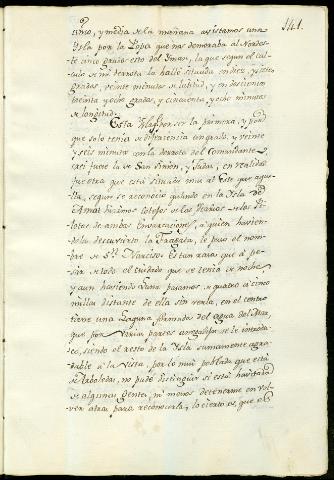 141.
cinco, y media de la mañana avistamos una
Ysla por la Popa que nos demoraba al Nordes-
te cinco grados este del Imon, la que segun el cal-
culo de mi derrota la hallé situada en diez, y siete
grados, veinte minutos de latitud, y en doscientos
treinta y ocho grados, y cincuenta, y ocho minutos
de longitud.
Esta Ysla por ser la primera, y por
que solo tenia de diferencia un grado, y veinte
y seis minutos con la derrota del Comandante
casi fuese la de San Simon, y Judas, en realidad
fue otra que está situada mas al Este que aque-
lla, segun se reconoció quando en la Ysla de
Amat hicimos cotejo de los Diarios de los Pi-
lotos de ambas Embarcaciones, á quien havien-
dola descuvierto la Fragata, le puso el nom-
bre de Sn. Narciso. Es tan rasa que á pe-
sar de todo el cuidado que se tenia de noche
y aun haviendo Luna pasamos de quatro á cinco
millas distante de ella sin verla, en el centro
tiene una Laguna formada del agua del Mar,
que por varias partes se le introdu-
ce, siendo el resto de la Ysla sumamente agra-
dable á la vista, por lo mui poblada que está
de Arboledas, no pude distinguir si está havitada
de alguna Gente, ni menos detenerme en vol-
ver atras para reconocerla, lo cierto es, que es